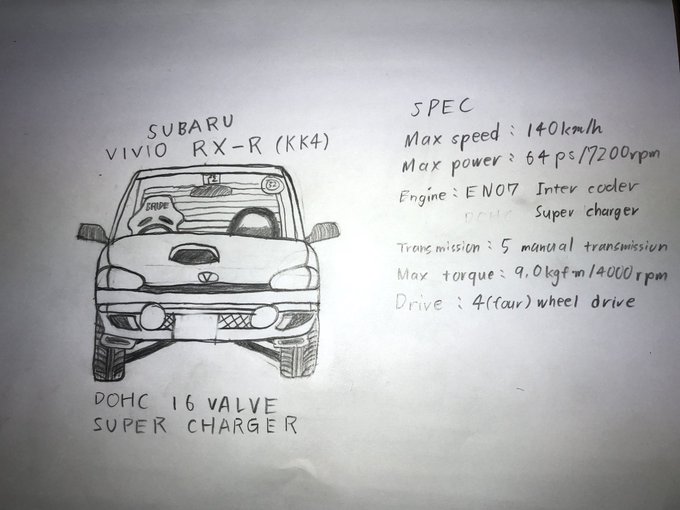 SUBARU
VIVIO RX-R (KK4)
BRIDE
DOHC 16 VALVE
SUPER CHARGER
SPEC
Max speed : 140km/h
Max power : 64ps/7200rpm
Engine : EN07 Inter cooler
DOHC Super charger
Transmission : 5 manual transmission
Max torque : 9.0kgfm/4000rpm
Drive : 4(four) wheel drive